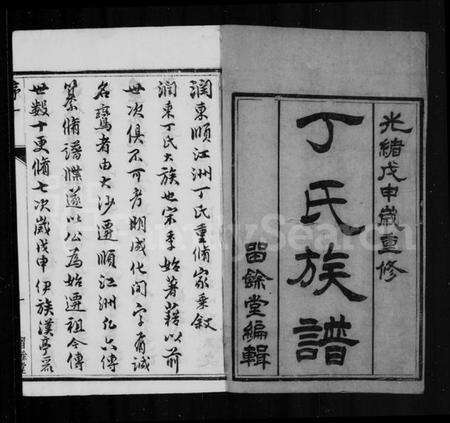 光緒戊申歲重修
丁氏族譜
留餘堂編輯
潤東順江洲丁氏重脩家乘敘
潤東丁氏大族也宗季始著籍以前
世次俱不可考明成化間字有誠
名鸞者由大沙遷順江洲弘六傳
纂脩譜牒遂以公為始遷祖今傳
世數十更脩七次歲戊申伊族漢亭
FamilySearch